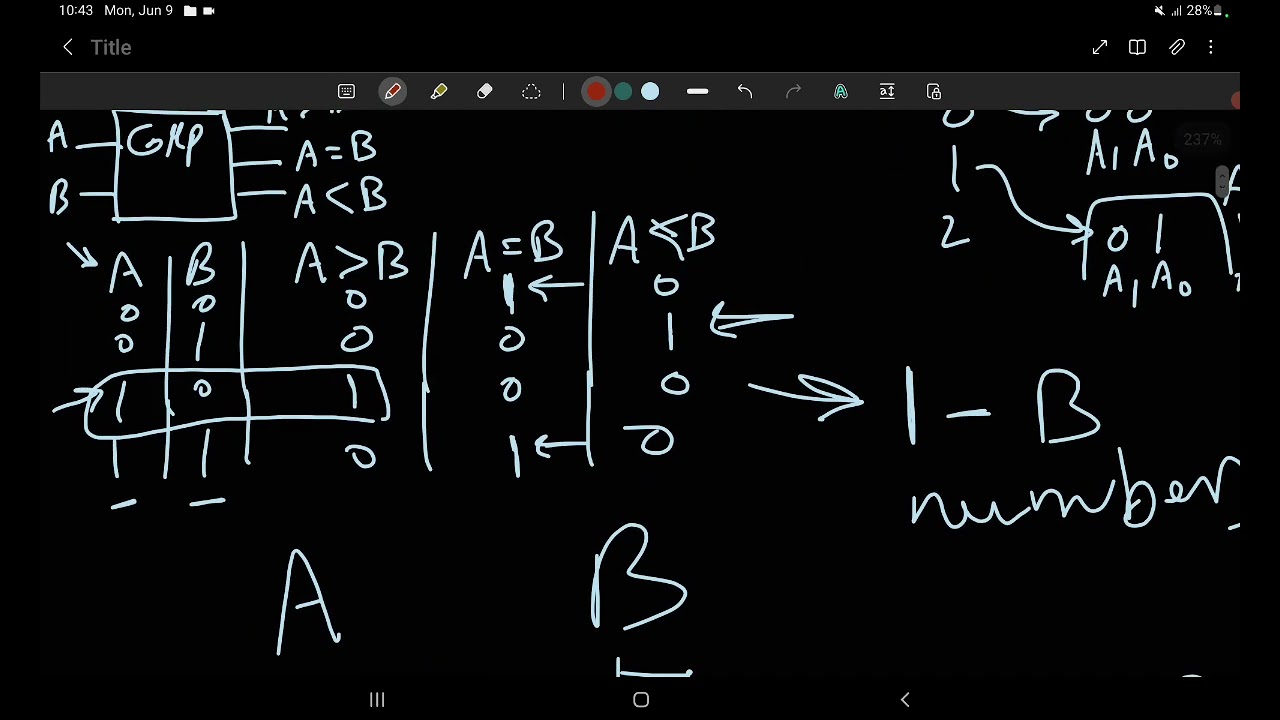 10:43 Mon, Jun 9 28%
Title
A COMP
A = B
B A < B
237%
0 → 00
A₁ A₀
1
2 0 1
A₁ A₀
A B A > B A = B A < B
0 0 0 1 0
0 1 0 0 1
1 0 1 0 0
1 1 0 1 0
1 - B
number
A B